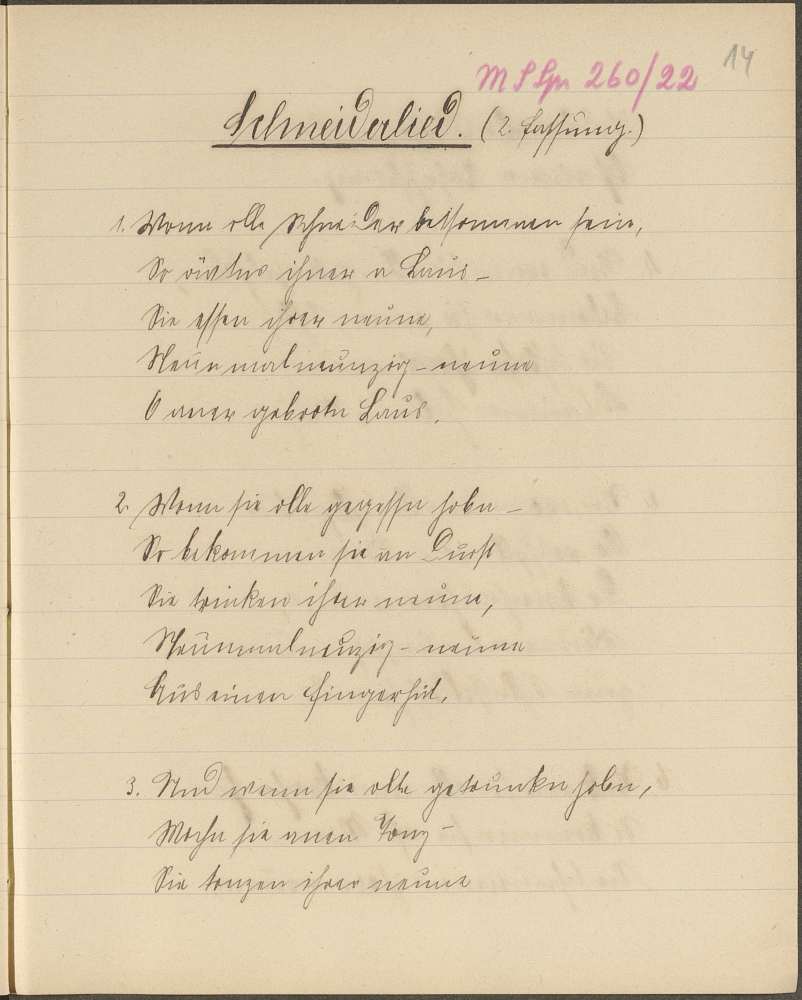 14
M S Sp 260/22
Schneiderlied. (2. Fassung.)
1. Wonn olle Schneider beisommen sein,
So ihner a Laus –
Sie essen ihrer neune,
Neunmalneunzig-neune
O aner gebrotn Laus.
2. Wonn sie olle gegessn hobn –
So bekommen sie an Durst
Sie trinken ihrer neune,
Neunmalneunzig-neune
Aus einen Fingerhut.
3. Und wenn sie olle getrunkn hobn,
Mochn sie anen Tonz –
Sie tonzen ihrer neune